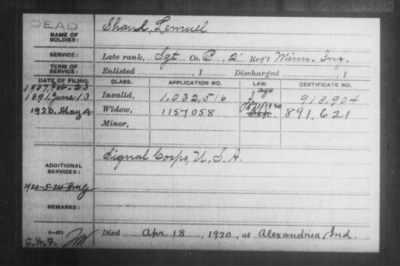 DEAD
NAME OF SOLDIER: Shank, Lemuel
SERVICE: Late rank, Sgt Co. C, 2" Reg't Minn. Inf.
TERM OF SERVICE: Enlisted , 1 Discharged , 1
DATE OF FILING. CLASS. APPLICATION NO. LAW. CERTIFICATE NO.
1891, June 13 Invalid, 1,032,516 age 918,904
1920, May 4 Widow, 1157058 891,621
Minor,
ADDITIONAL SERVICES: Signal Corps, U.S.A.
REMARKS:
Died Apr. 18, 1920, at Alexandria, Ind.